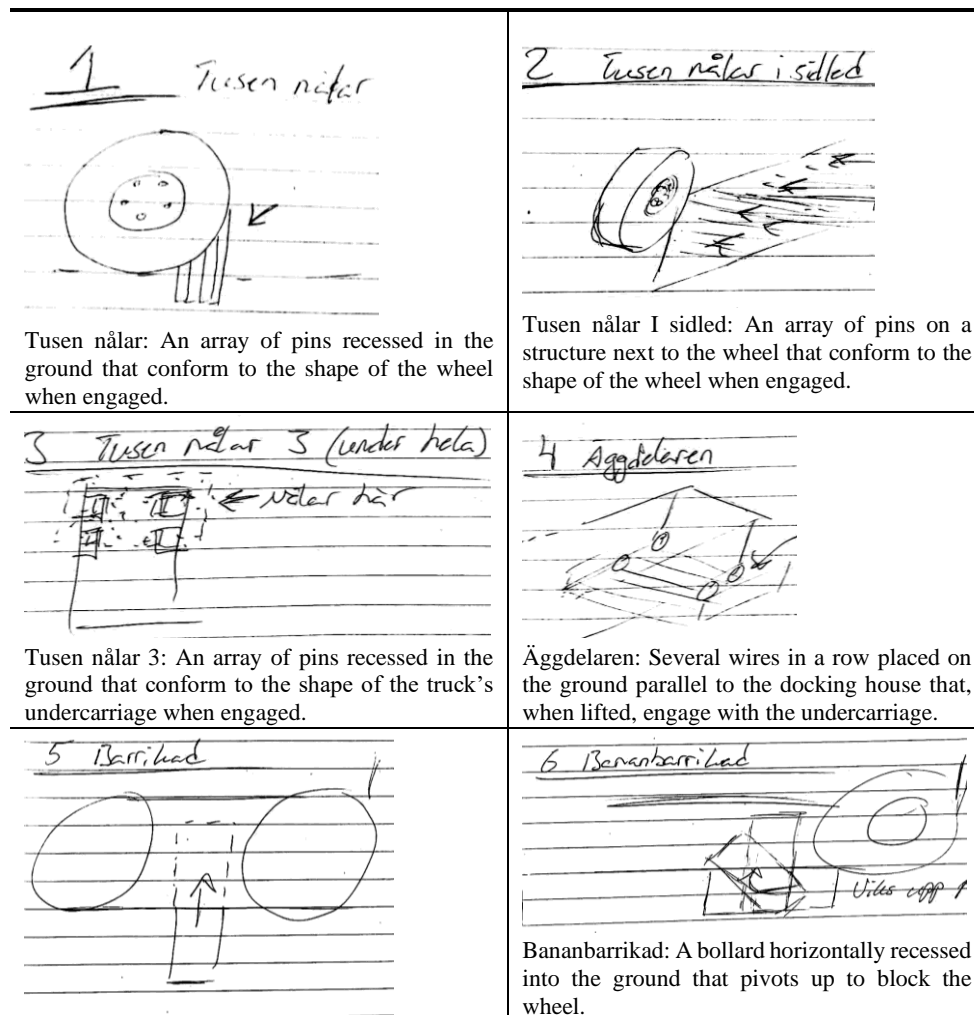 1 Tusen nålar
Tusen nålar: An array of pins recessed in the
ground that conform to the shape of the wheel
when engaged.
2 Tusen nålar i sidled
Tusen nålar I sidled: An array of pins on a
structure next to the wheel that conform to the
shape of the wheel when engaged.
3 Tusen nålar 3 (under hela)
Nålar här
Tusen nålar 3: An array of pins recessed in the
ground that conform to the shape of the truck's
undercarriage when engaged.
4 Äggdelaren
Äggdelaren: Several wires in a row placed on
the ground parallel to the docking house that,
when lifted, engage with the undercarriage.
5 Barrikad
6 Bananbarrikad
Viks upp
Bananbarrikad: A bollard horizontally recessed
into the ground that pivots up to block the
wheel.